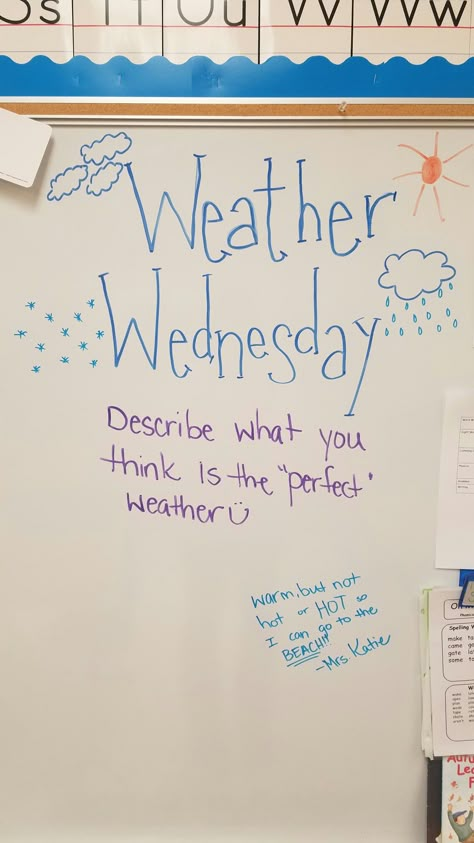 Ss Tt Uu Vv Ww
Weather
Wednesday
Describe what you
think is the "perfect"
weather
warm, but not
hot or HOT so
I can go to the
BEACH!!
-Mrs Katie
Spelling W
make ta
came ga
gate la
some to